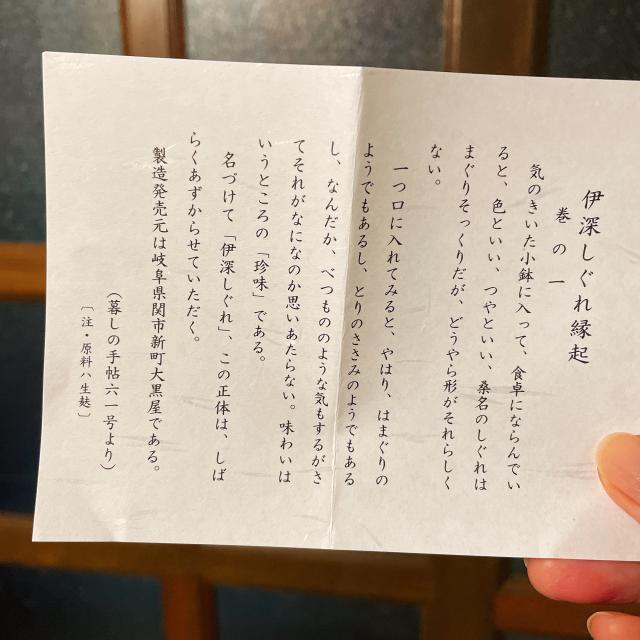 伊深しぐれ縁起
巻の一
気のきいた小鉢に入って、食卓にならんでい
ると、色といい、つやといい、桑名のしぐれは
まぐりそっくりだが、どうやら形がそれらしく
ない。
一つ口に入れてみると、やはり、はまぐりの
ようでもあるし、とりのささみのようでもある
し、なんだか、べつもののような気もするがさ
てそれがなになのか思いあたらない。味わいは
いうところの「珍味」である。
名づけて「伊深しぐれ」、この正体は、しば
らくあずからせていただく。
製造発売元は岐阜県関市新町大黒屋である。
（暮しの手帖六一号より）
〔注・原料ハ生麸〕